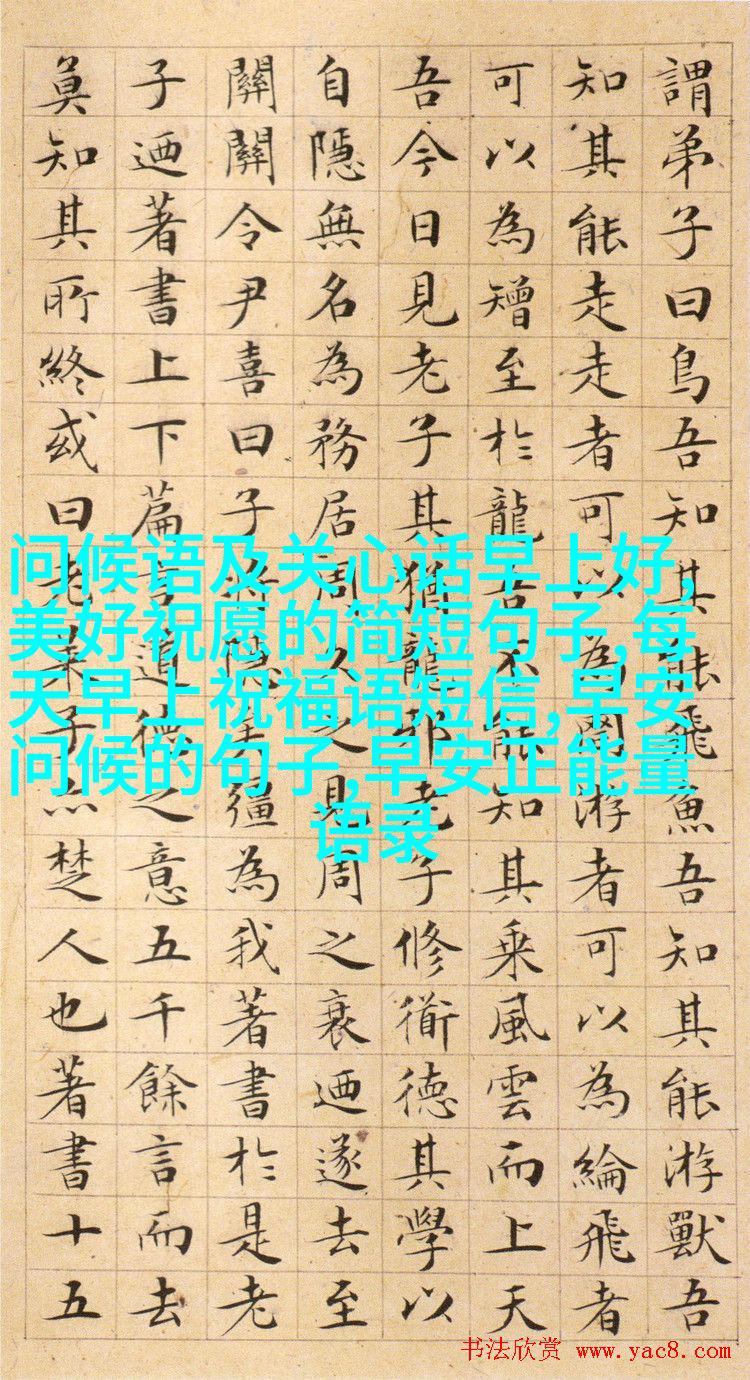 謂弟子曰鳥吾知其能飛魚吾知其能游獸吾
知其能走走者可以為罔游者可以為綸飛者
可以為矰至於龍吾不能知其乘風雲而上天
吾今日見老子其猶龍邪老子修衜德其學以
自隱無名為務居周久之見周之衰迺遂去至
關關令尹喜曰子將隱矣彊為我著書於是老
子迺著書上下篇言道德之意五千餘言而去
莫知其所終或曰老萊子亦楚人也著書十五
问候语及关心话早上好,
美好祝愿的简短句子,每
天早上祝福语短信,早安
问候的句子,早安正能量
语录
书法欣赏 www.yac8.com